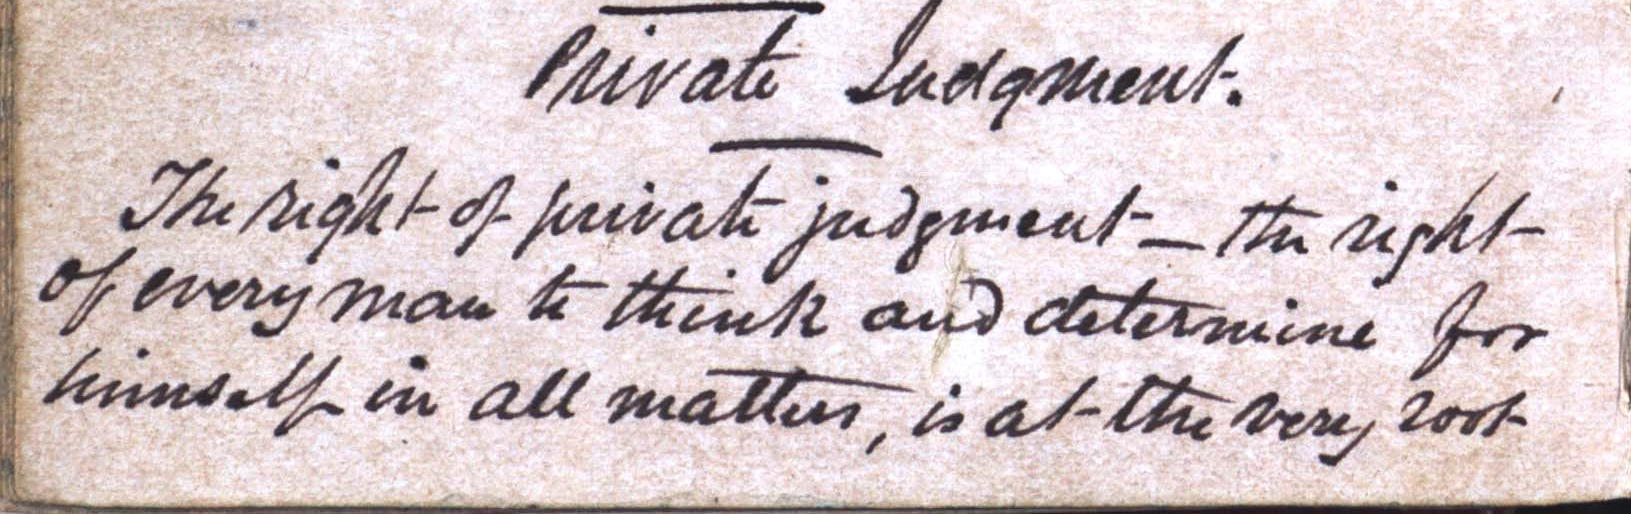 Private Judgment.
The right of private judgment — the right
of every man to think and determine for
himself in all matters, is at the very root